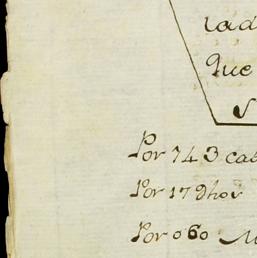 lad
Que
S
Por 743 cab
Por 17 Dhos
Por 060